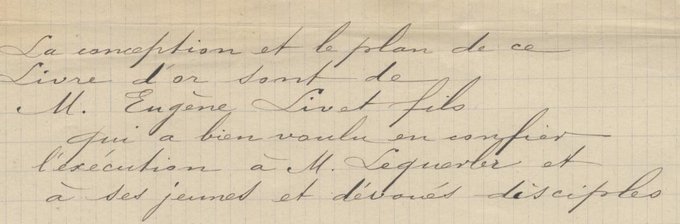 La conception et le plan de ce
Livre d'or sont de
M. Eugène Livet fils
qui a bien voulu en confier
l'exécution à M. Lequerler et
à ses jeunes et dévoués disciples